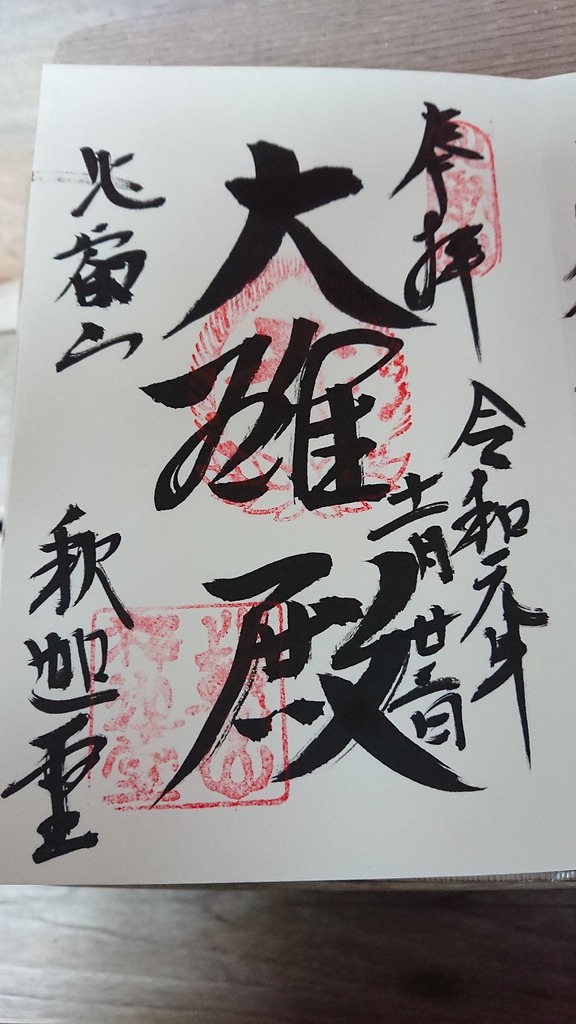 奉拝
令和元年
十一月廿三日
大雄殿
比叡山
釈迦堂